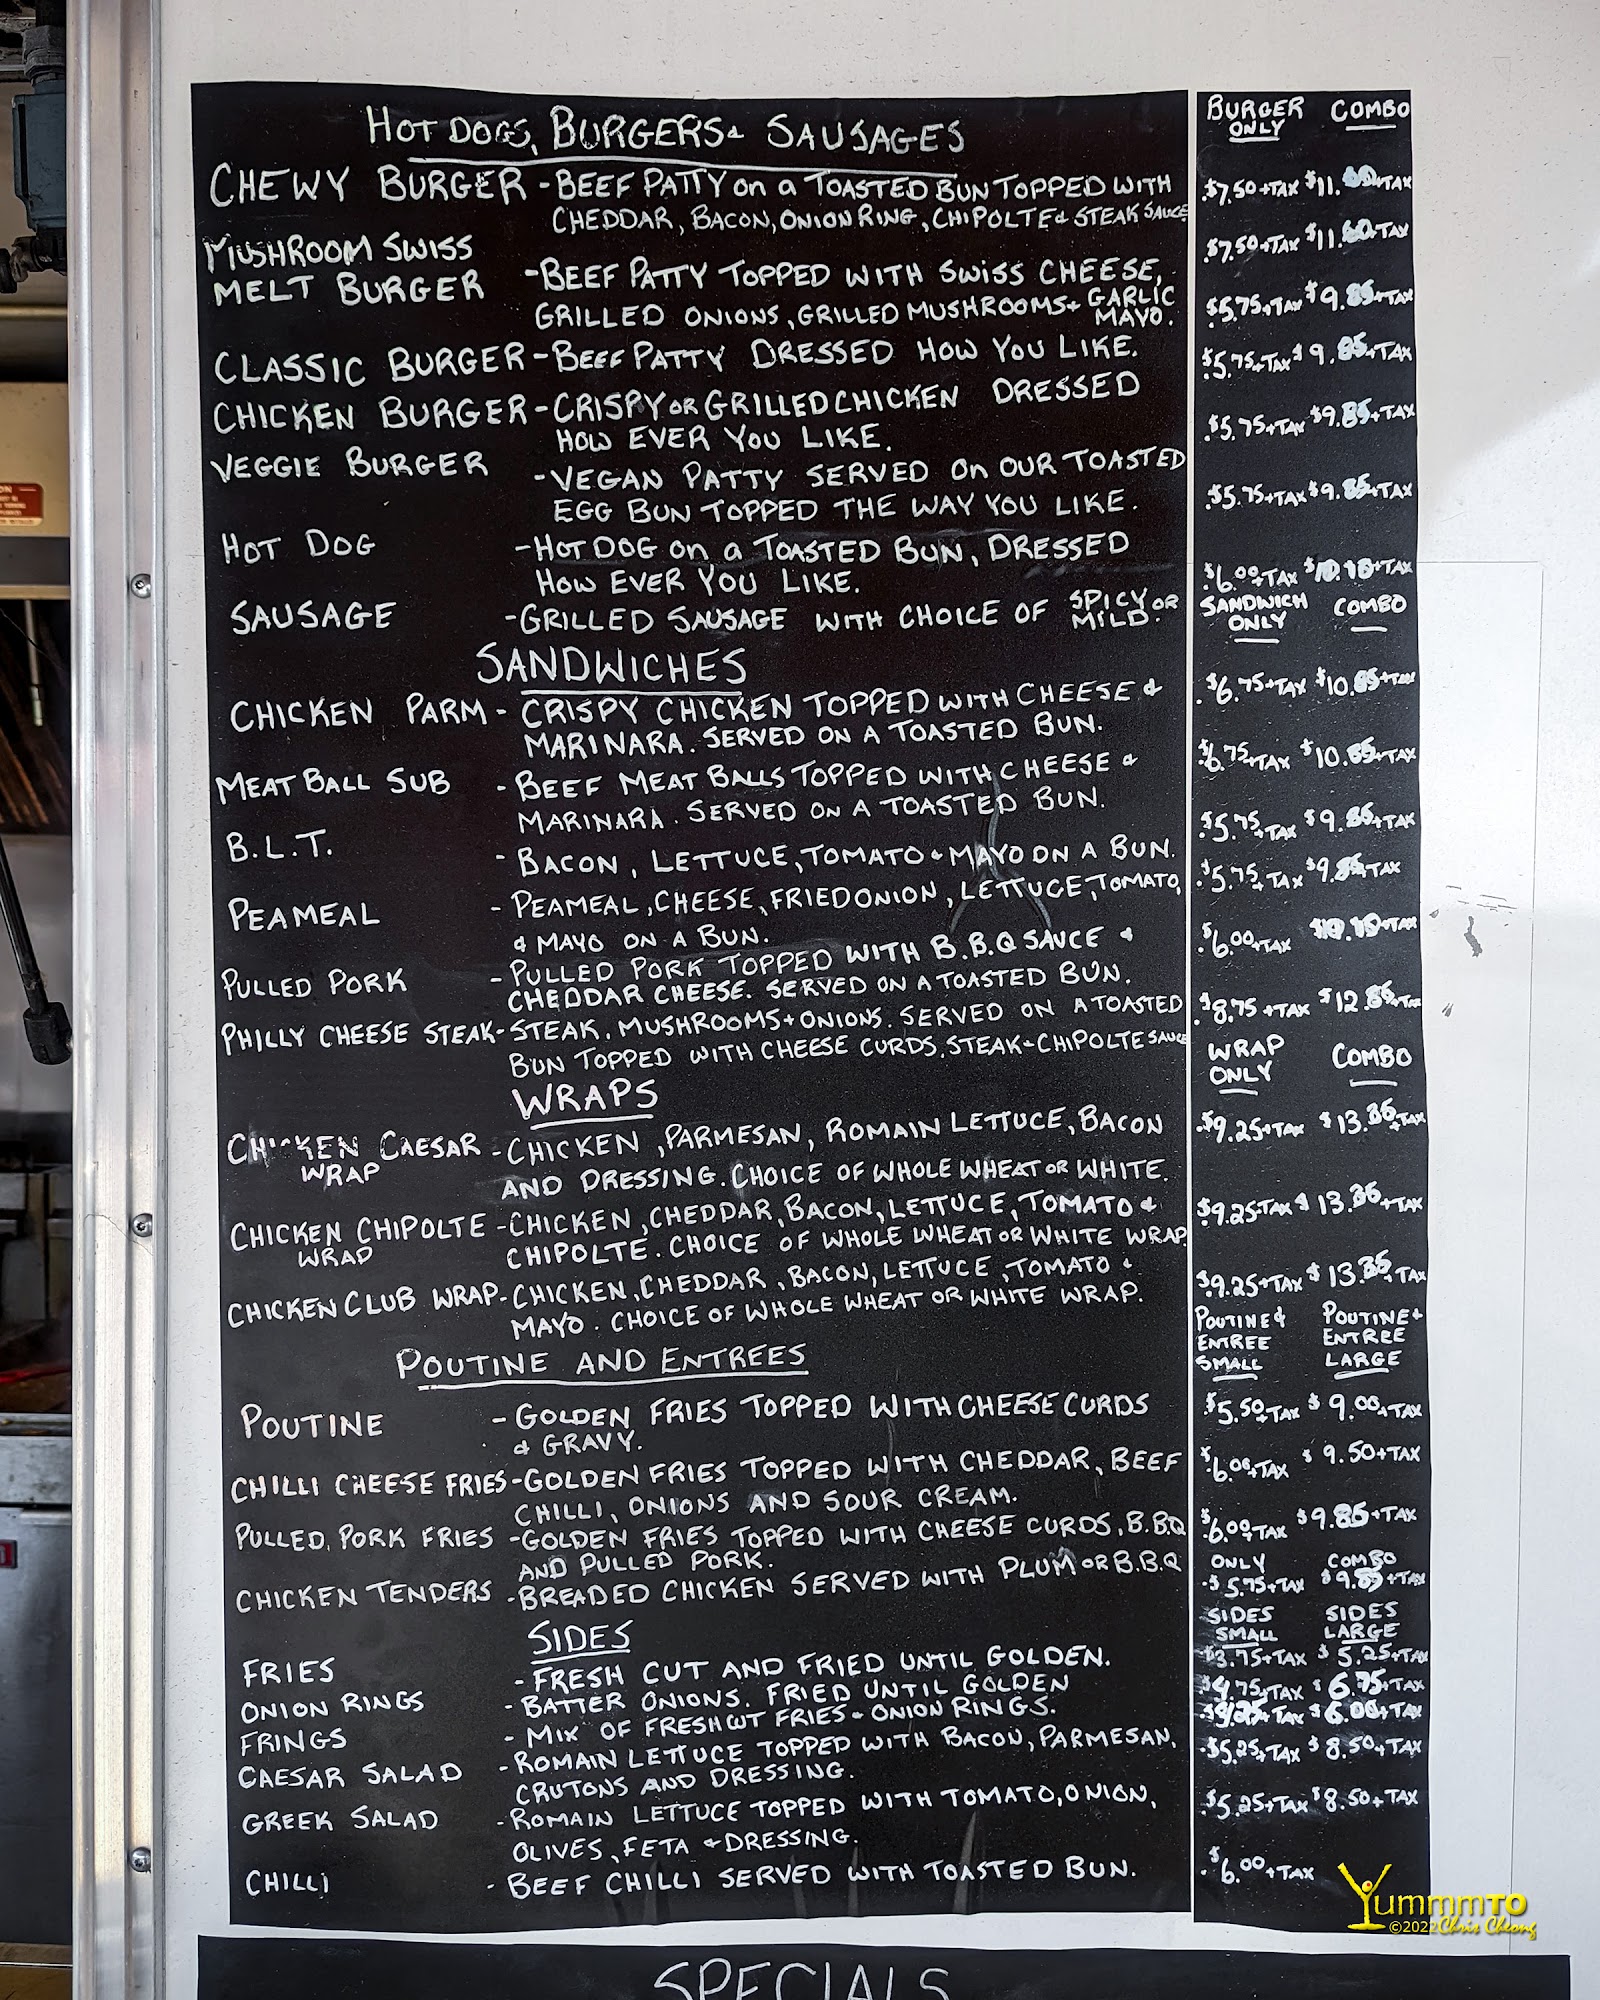 HOT DOGS, BURGERS & SAUSAGES
BURGER ONLY COMBO
CHEWY BURGER - BEEF PATTY on a TOASTED BUN TOPPED WITH
CHEDDAR, BACON, ONION RING, CHIPOLTE & STEAK SAUCE
$7.50+TAX $11.60+TAX
MUSHROOM SWISS
MELT BURGER - BEEF PATTY TOPPED WITH SWISS CHEESE,
GRILLED ONIONS, GRILLED MUSHROOMS + GARLIC MAYO.
$7.50+TAX $11.60+TAX
CLASSIC BURGER - BEEF PATTY DRESSED HOW YOU LIKE.
$5.75+TAX $9.85+TAX
CHICKEN BURGER - CRISPY OR GRILLED CHICKEN DRESSED
HOW EVER YOU LIKE.
$5.75+TAX $9.85+TAX
VEGGIE BURGER - VEGAN PATTY SERVED On OUR TOASTED
EGG BUN TOPPED THE WAY YOU LIKE.
$5.75+TAX $9.85+TAX
HOT DOG - HOT DOG on a TOASTED BUN, DRESSED
HOW EVER YOU LIKE.
$5.75+TAX $9.85+TAX
SAUSAGE - GRILLED SAUSAGE WITH CHOICE OF SPICY OR MILD.
$6.00+TAX $10.10+TAX
SANDWICHES
SANDWICH ONLY COMBO
CHICKEN PARM - CRISPY CHICKEN TOPPED WITH CHEESE &
MARINARA. SERVED ON A TOASTED BUN.
$6.75+TAX $10.85+TAX
MEAT BALL SUB - BEEF MEAT BALLS TOPPED WITH CHEESE &
MARINARA. SERVED ON A TOASTED BUN.
$6.75+TAX $10.85+TAX
B.L.T. - BACON, LETTUCE, TOMATO & MAYO ON A BUN.
$5.75+TAX $9.85+TAX
PEAMEAL - PEAMEAL, CHEESE, FRIED ONION, LETTUCE, TOMATO,
& MAYO ON A BUN.
$5.75+TAX $9.85+TAX
PULLED PORK - PULLED PORK TOPPED WITH B.B.Q SAUCE &
CHEDDAR CHEESE. SERVED ON A TOASTED BUN.
$6.00+TAX $10.10+TAX
PHILLY CHEESE STEAK - STEAK, MUSHROOMS + ONIONS. SERVED ON A TOASTED
BUN TOPPED WITH CHEESE CURDS, STEAK + CHIPOLTE SAUCE
$8.75+TAX $12.85+TAX
WRAPS
WRAP ONLY COMBO
CHICKEN CAESAR WRAP - CHICKEN, PARMESAN, ROMAIN LETTUCE, BACON
AND DRESSING. CHOICE OF WHOLE WHEAT OR WHITE.
$9.25+TAX $13.35+TAX
CHICKEN CHIPOLTE WRAP - CHICKEN, CHEDDAR, BACON, LETTUCE, TOMATO &
CHIPOLTE. CHOICE OF WHOLE WHEAT OR WHITE WRAP.
$9.25+TAX $13.35+TAX
CHICKEN CLUB WRAP - CHICKEN, CHEDDAR, BACON, LETTUCE, TOMATO &
MAYO. CHOICE OF WHOLE WHEAT OR WHITE WRAP.
$9.25+TAX $13.35+TAX
POUTINE AND ENTREES
POUTINE & ENTREE SMALL POUTINE & ENTREE LARGE
POUTINE - GOLDEN FRIES TOPPED WITH CHEESE CURDS
& GRAVY.
$5.50+TAX $9.00+TAX
CHILLI CHEESE FRIES - GOLDEN FRIES TOPPED WITH CHEDDAR, BEEF
CHILLI, ONIONS AND SOUR CREAM.
$6.00+TAX $9.50+TAX
PULLED PORK FRIES - GOLDEN FRIES TOPPED WITH CHEESE CURDS, B.B.Q
AND PULLED PORK.
$6.00+TAX $9.85+TAX
ONLY COMBO
CHICKEN TENDERS - BREADED CHICKEN SERVED WITH PLUM OR B.B.Q
$5.75+TAX $9.85+TAX
SIDES
SIDES SMALL SIDES LARGE
FRIES - FRESH CUT AND FRIED UNTIL GOLDEN.
$3.75+TAX $5.25+TAX
ONION RINGS - BATTER ONIONS. FRIED UNTIL GOLDEN
$4.75+TAX $6.75+TAX
FRINGS - MIX OF FRESH CUT FRIES & ONION RINGS.
$6.00+TAX
CAESAR SALAD - ROMAIN LETTUCE TOPPED WITH BACON, PARMESAN,
CRUTONS AND DRESSING.
$5.25+TAX $8.50+TAX
GREEK SALAD - ROMAIN LETTUCE TOPPED WITH TOMATO, ONION,
OLIVES, FETA & DRESSING.
$5.25+TAX $8.50+TAX
CHILLI - BEEF CHILLI SERVED WITH TOASTED BUN.
$6.00+TAX
YummmTO
©2022 Chris Cheong
SPECIALS